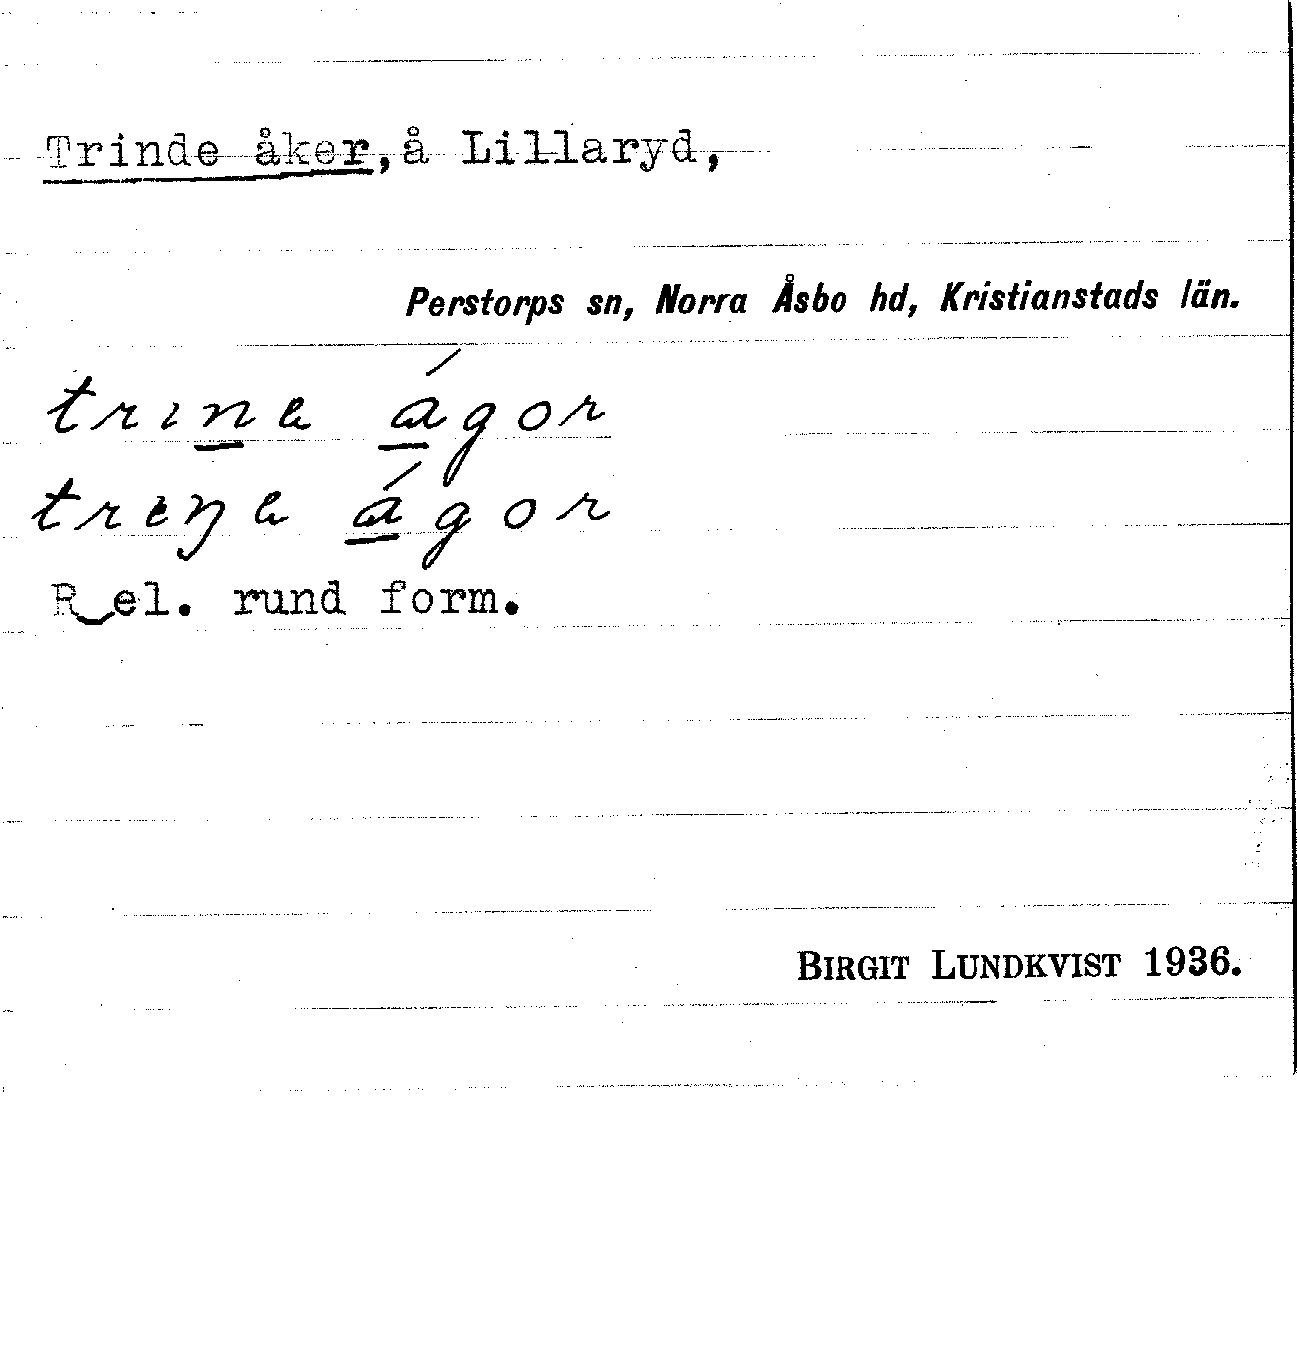 Trinde åker, å Lillaryd,
Perstorps sn, Norra Åsbo hd, Kristianstads län.
trına ágor
treŋa ágor
Rel. rund form.
BIRGIT LUNDKVIST 1936.